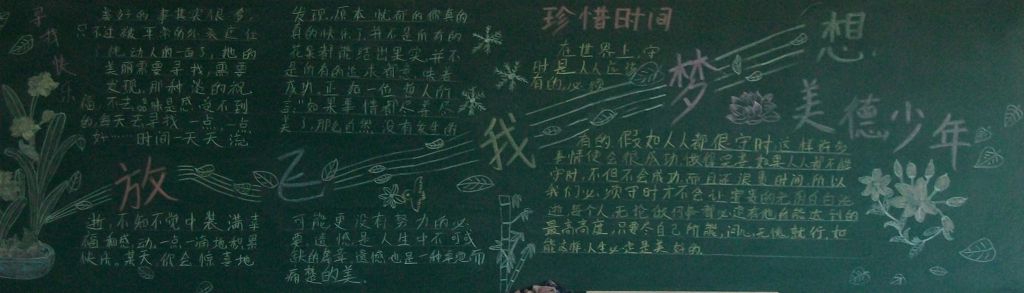 寻找快乐
美好的事其实很多,
只不过被平常的外表遮住
了动人的一面了,她的
美丽需要寻找,需要
发现,那种淡的祝
福,不去品味是感受不到
的,每天去寻找一点一点
好……时间一天天流
逝,不知不觉中装满幸
福和感动,一点一滴地积累
快乐。某天,你会惊喜地
发现,原本忧郁的你真的
真的快乐了,并不是所有的
花朵都能结出果实,并不
是所有的
成功,正如一位哲人所
言:"如果事情都尽善尽
美了,那么自然没有发生的
可能更没有努力的必
要。遗憾是人生中不可或
缺的篇章,遗憾也是一种幸福而
痛楚的美。
放飞我梦想
珍惜时间
在世界上,守
时是人人应该
有的,必
美德少年
有的,假如人人都很守时,这样许多
事情便会很成功,做得完美,如果人人都不能
守时,不但不会成功,而且还浪费时间,所以
我们必须守时才不会让宝贵的光阴白白流
逝,每个人无论做什么事都必定有他所能达到的
最高高度,只要尽自己所能,问心无愧就行,如
能这样人生必定是美好的